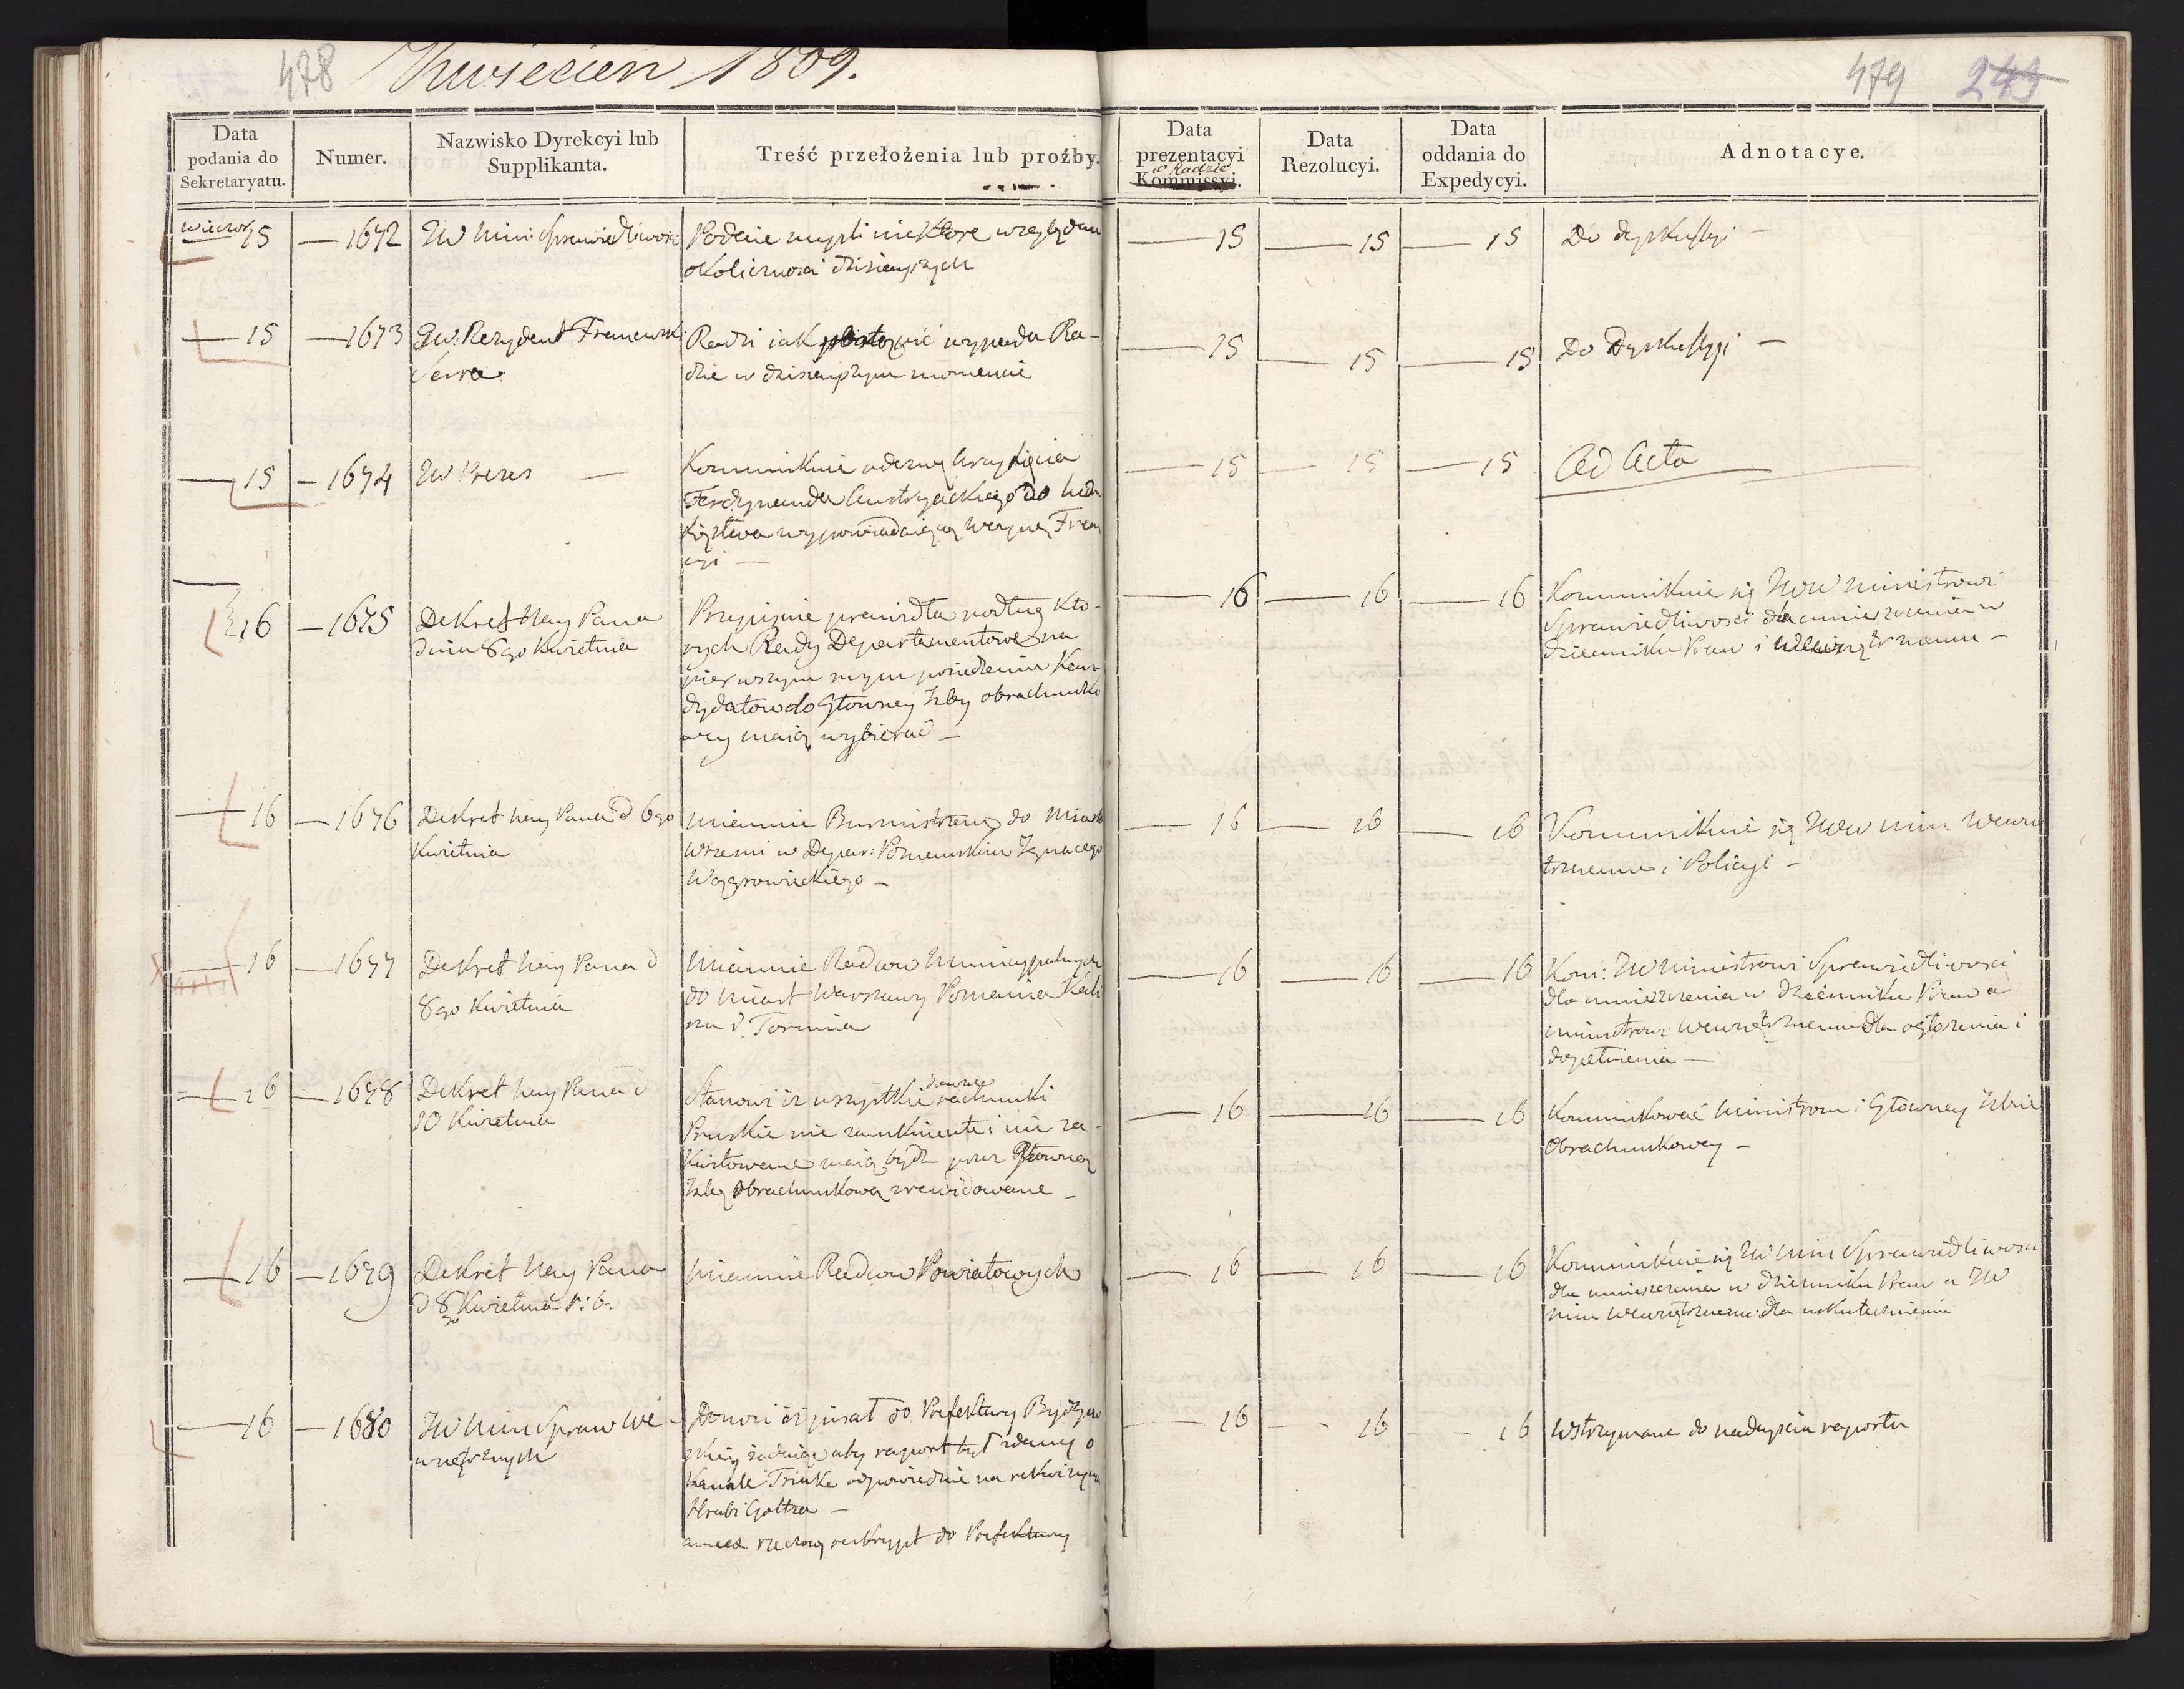 478 Kwiecien 1809.
479 243
Data podania do Sekretaryatu.
Numer.
Nazwisko Dyrekcyi lub Supplikanta.
Treść przełożenia lub proźby.
Data prezentacyi w Radzie Kommissyi.
Data Rezolucyi.
Data oddania do Expedycyi.
Adnotacye.
wieczor 15 — 1672 JW Mini: Sprawiedliwosci
Podaie mysli niektore względem
okolicznosci dzisieyszych
— 15 — 15 — 15 Do dyskussyi —
— 15 — 1673 JW: Rezydent Francuzki
Serra
Radzi iak postąpić wypada Ra-
dzie w dzisieyszym momencie
— 15 — 15 — 15 Do Dyskussyi —
— 15 — 1674 JW Prezes —
Kommunikuie odezwę Arcy Xięcia
Ferdynanda Austryackiego do ludu
Xięstwa wypowiadaiącą woynę Fran
cyi —
— 15 — 15 — 15 Ad Acta
16 — 1675 Dekret Nay Pana
dnia 8go Kwietnia
Przepisuie prawidła podług kto-
rych Rady Departamentowe na
pierwszym swym posiedzeniu Kan-
dydatow do Głowney Izby obrachunko
wey maią wybierać —
— 16 — 16 — 16 Kommunikuie się JWW Ministrowi
Sprawiedliwosci dla umieszczenia w
dzienniku Praw i Wewnętrznemu —
— 16 — 1676 Dekret Nay Pana d 6go
Kwietnia
Mianuie Burmistrzem do Miasta
Wrzesni w Depar: Poznanskim Ignacego
Wągrowieckiego —
— 16 — 16 — 16 Kommunikuie się JWW Min. Wewnę
trznemu i Policyi —
— 16 — 1677 Dekret Nay Pana d
8go Kwietnia
Mianuie Radcow Municypalnych
do Miast Warszawy Poznania Kali
sza i Torunia
— 16 — 16 — 16 Kom: JW Ministrowi Sprawiedliwosci
dla umieszczenia w dzienniku Praw a
Ministrowi Wewnętrznemu dla ogłoszenia i
dopełnienia —
— 16 — 1678 Dekret Nay Pana d
10 Kwietnia
Stanowi iż wszystkie dawne rachunki
Pruskie nie zamknięte i nie za-
kwitowane maią bydź przez Głowną
Izbę Obrachunkową zrewidowane —
— 16 — 16 — 16 Kommunikować Ministrom i Głowney Izbie
Obrachunkowey —
— 16 — 1679 Dekret Nay Pana
d 8go Kwietnia r: b:
Mianuie Radcow Powiatowych
— 16 — 16 — 16 Kommunikuie się JW Min Sprawiedliwosci
dla umieszczenia w dzienniku Praw a JW
Min Wewnętrznemu dla uskutecznienia
— 16 — 1680 JW Min Spraw We-
wnętrznych
Donosi iż pisał do Prefektury Bydgo
skiey żądaiąc aby raport był zdany o
Kanale Trinke odpowiednie na
Hrabi Goltza —
rzeczony reskrypt do Prefektury
— 16 — 16 — 16 Wstrzymane do nadeyscia raportu